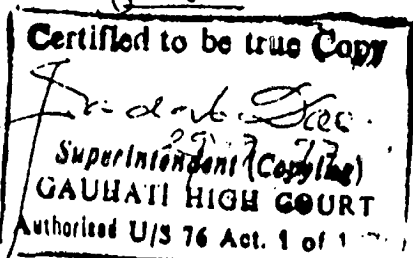 Certified to be true Copy
Superintendent (Copying)
GAUHATI HIGH COURT
Authorised U/S 76 Act. 1 of 1